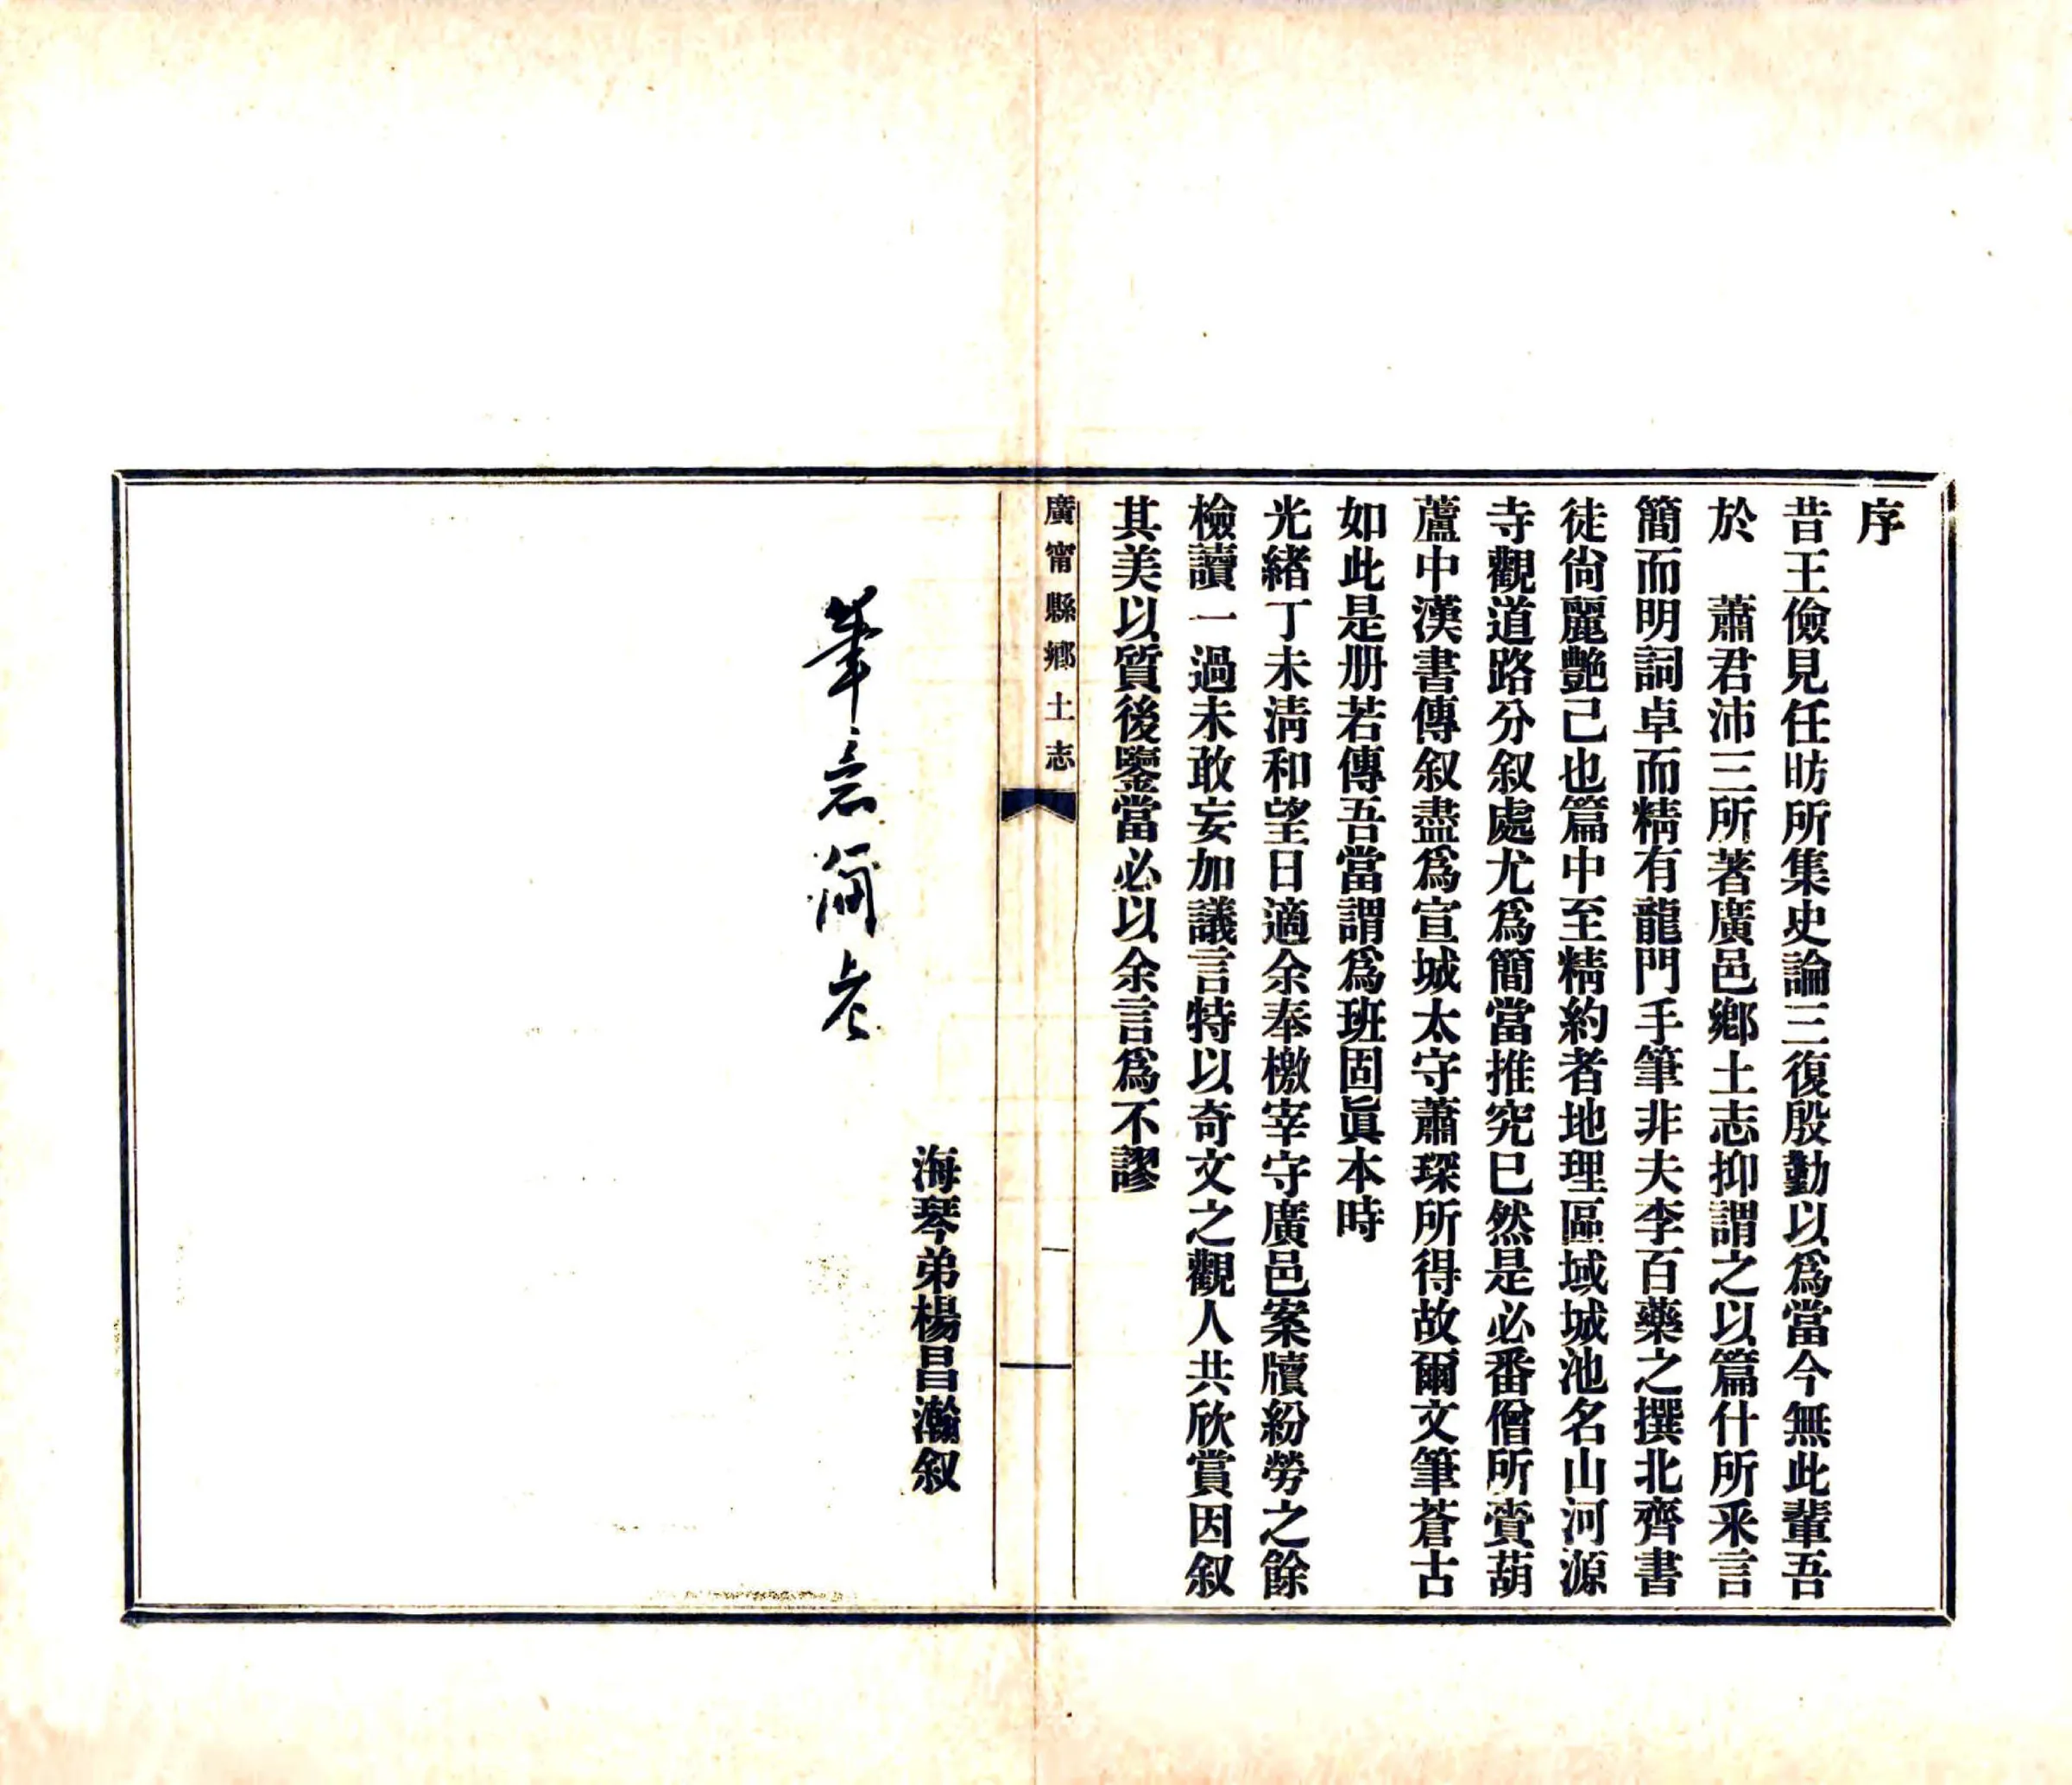 序
昔王儉見任昉所集史論三復殷勤以爲當今無此輩吾
於　蕭君沛三所著廣邑鄉土志抑謂之以篇什所釆言
簡而明詞卓而精有龍門手筆非夫李百藥之撰北齊書
徒尙麗艶己也篇中至精約者地理區域城池名山河源
寺觀道路分叙處尤爲簡當推究已然是必番僧所賫葫
蘆中漢書傳叙盡爲宣城太守蕭琛所得故爾文筆蒼古
如此是册若傳吾當謂爲班固眞本時
光緒丁未淸和望日適余奉檄宰守廣邑案牘紛勞之餘
檢讀一過未敢妄加議言特以奇文之觀人共欣賞因叙
其美以質後鑒當必以余言爲不謬
廣甯縣鄉土志
一
海琴弟楊昌瀚叙
筆意簡老